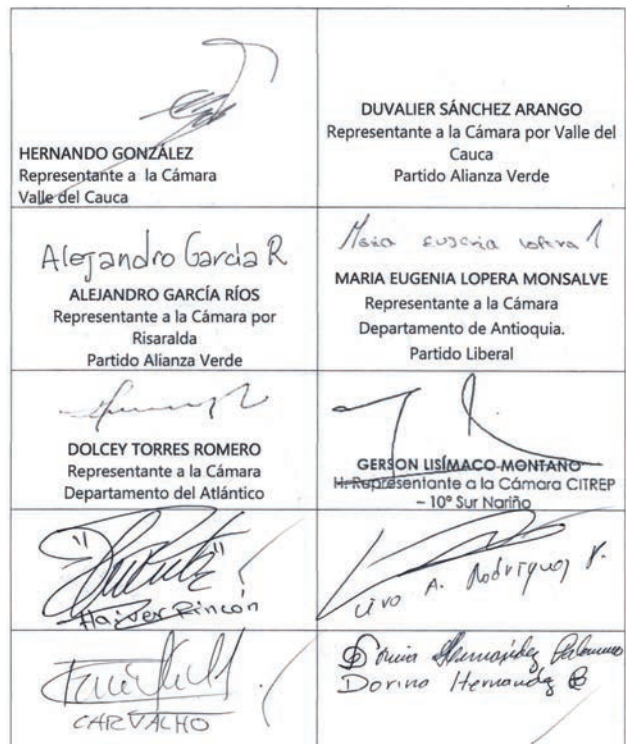 HERNANDO GONZÁLEZ
Representante a la Cámara
Valle del Cauca
DUVALIER SÁNCHEZ ARANGO
Representante a la Cámara por Valle del
Cauca
Partido Alianza Verde
Alejandro García R
ALEJANDRO GARCÍA RÍOS
Representante a la Cámara por
Risaralda
Partido Alianza Verde
Maria Eugenia Lopera
MARIA EUGENIA LOPERA MONSALVE
Representante a la Cámara
Departamento de Antioquia.
Partido Liberal
DOLCEY TORRES ROMERO
Representante a la Cámara
Departamento del Atlántico
GERSON LISÍMACO MONTAÑO
H. Representante a la Cámara CITREP
– 10º Sur Nariño
Haiver Rincón
A. Rodriguez
CARVALHO
Hernández
Dorina Hernandez